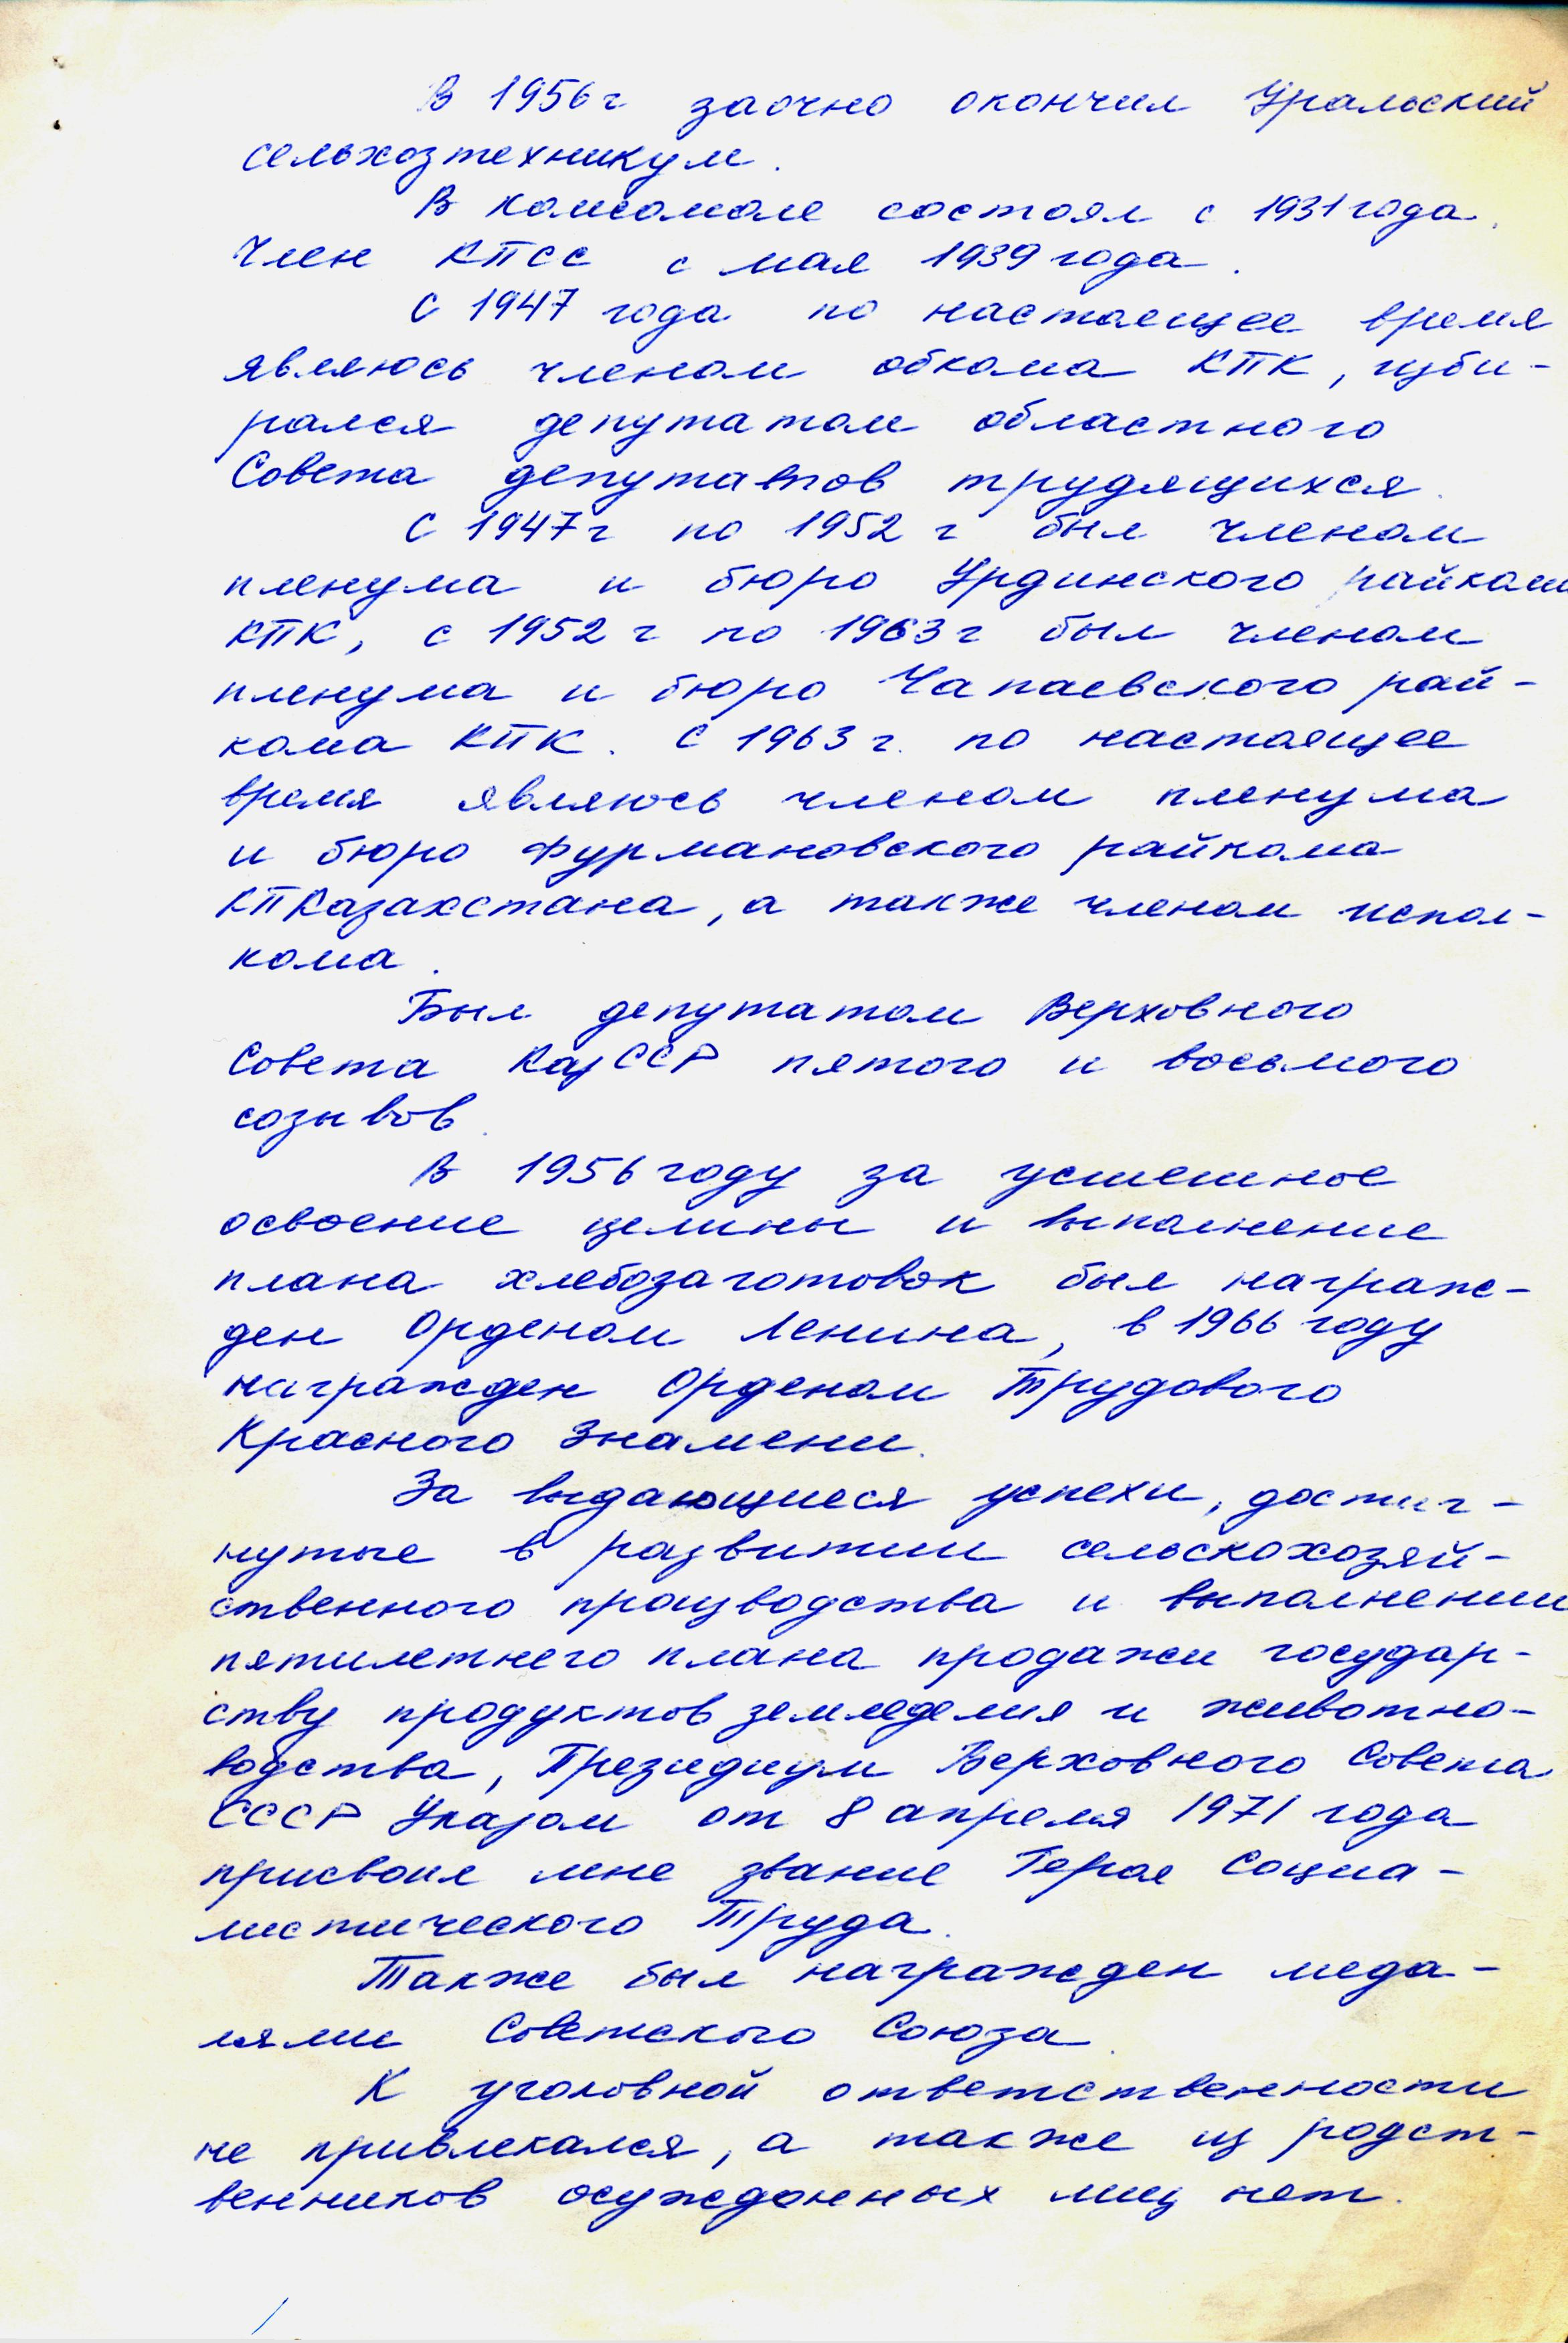 В 1956 г заочно окончил Уральский
сельхозтехникум.
В комсомоле состоял с 1931 года.
Член КПСС с мая 1939 года.
С 1947 года по настоящее время
являюсь членом обкома КПК, изби-
рался депутатом областного
Совета депутатов трудящихся.
С 1947 г по 1952 г был членом
пленума и бюро Урдинского райкома
КПК, с 1952 г по 1963 г был членом
пленума и бюро Чапаевского рай-
кома КПК. С 1963 г. по настоящее
время являюсь членом пленума
и бюро Фурмановского райкома
КПКазахстана, а также членом испол-
кома.
Был депутатом Верховного
Совета КазССР пятого и восьмого
созывов.
В 1956 году за успешное
освоение целины и выполнение
плана хлебозаготовок был награж-
ден Орденом Ленина, в 1966 году
награжден Орденом Трудового
Красного Знамени.
За выдающиеся успехи, достиг-
нутые в развитии сельскохозяй-
ственного производства и выполнении
пятилетнего плана продажи государ-
ству продуктов земледелия и животно-
водства, Президиум Верховного Совета
СССР Указом от 8 апреля 1971 года
присвоил мне звание Героя Социа-
листического Труда.
Также был награжден меда-
лями Советского Союза.
К уголовной ответственности
не привлекался, а также из родст-
венников осужденных лиц нет.